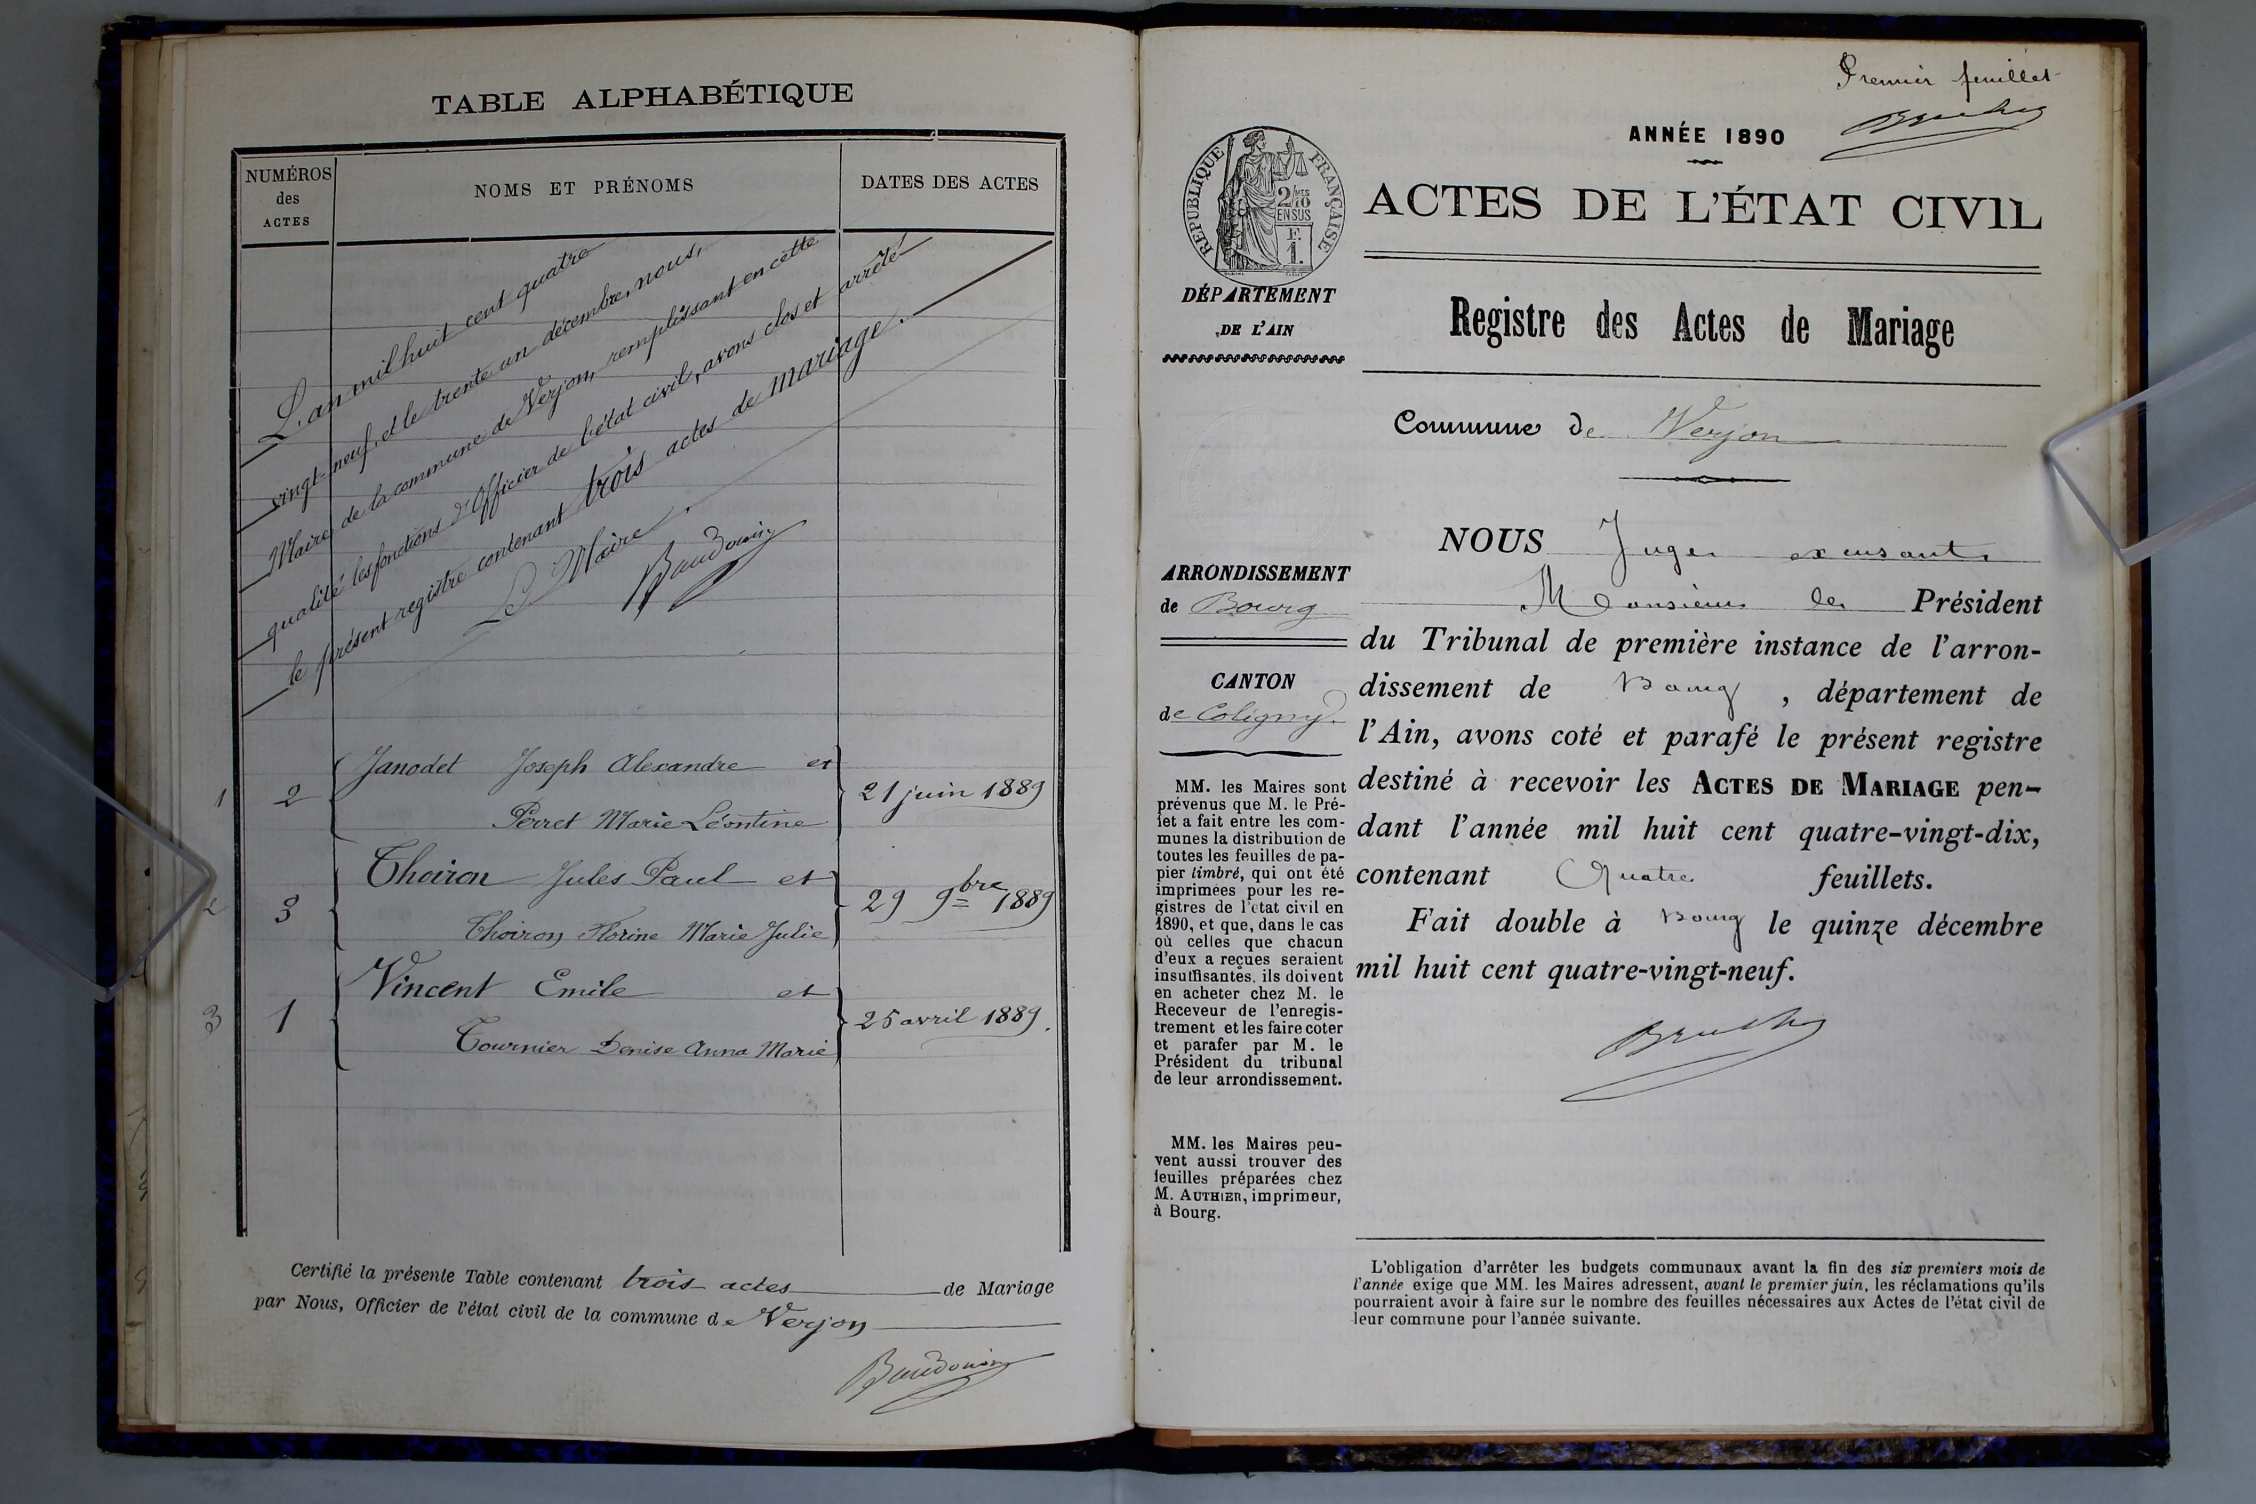 TABLE ALPHABÉTIQUE
NUMÉROS
des
ACTES
NOMS ET PRÉNOMS
DATES DES ACTES
L'an mil huit cent quatre
vingt-neuf, et le trente un décembre, nous,
Maire de la commune de Verjon, remplissant en cette
qualité les fonctions d'Officier de l'état civil, avons clos et arrêté
le présent registre contenant trois actes de mariage.
Le Maire
Baudouin
1 2 Janodet Joseph Alexandre et
Perret Marie Léontine
21 juin 1889
2 3 Thoiron Jules Paul et
Thoiron Florine Marie Julie
29 9bre 1889
3 1 Vincent Emile et
Tournier Denise Anna Marie
25 avril 1889.
Certifié la présente Table contenant trois actes de Mariage
par Nous, Officier de l'état civil de la commune de Verjon
Baudouin
Premier feuillet
ANNÉE 1890
RÉPUBLIQUE FRANÇAISE
2/10 MES
EN SUS
F.
1.
ACTES DE L'ÉTAT CIVIL
DÉPARTEMENT
DE L'AIN
Registre des Actes de Mariage
Commune de Verjon
ARRONDISSEMENT
de Bourg
CANTON
de Coligny.
MM. les Maires sont
prévenus que M. le Pré-
fet a fait entre les com-
munes la distribution de
toutes les feuilles de pa-
pier timbré, qui ont été
imprimées pour les re-
gistres de l'état civil en
1890, et que, dans le cas
où celles que chacun
d'eux a reçues seraient
insuffisantes, ils doivent
en acheter chez M. le
Receveur de l'enregis-
trement et les faire coter
et parafer par M. le
Président du tribunal
de leur arrondissement.
MM. les Maires peu-
vent aussi trouver des
feuilles préparées chez
M. AUTHIER, imprimeur,
à Bourg.
NOUS Juge excusant
Monsieur le Président
du Tribunal de première instance de l'arron-
dissement de Bourg, département de
l'Ain, avons coté et parafé le présent registre
destiné à recevoir les ACTES DE MARIAGE pen-
dant l'année mil huit cent quatre-vingt-dix,
contenant Quatre feuillets.
Fait double à Bourg le quinze décembre
mil huit cent quatre-vingt-neuf.
L'obligation d'arrêter les budgets communaux avant la fin des six premiers mois de
l'année exige que MM. les Maires adressent, avant le premier juin, les réclamations qu'ils
pourraient avoir à faire sur le nombre des feuilles nécessaires aux Actes de l'état civil de
leur commune pour l'année suivante.